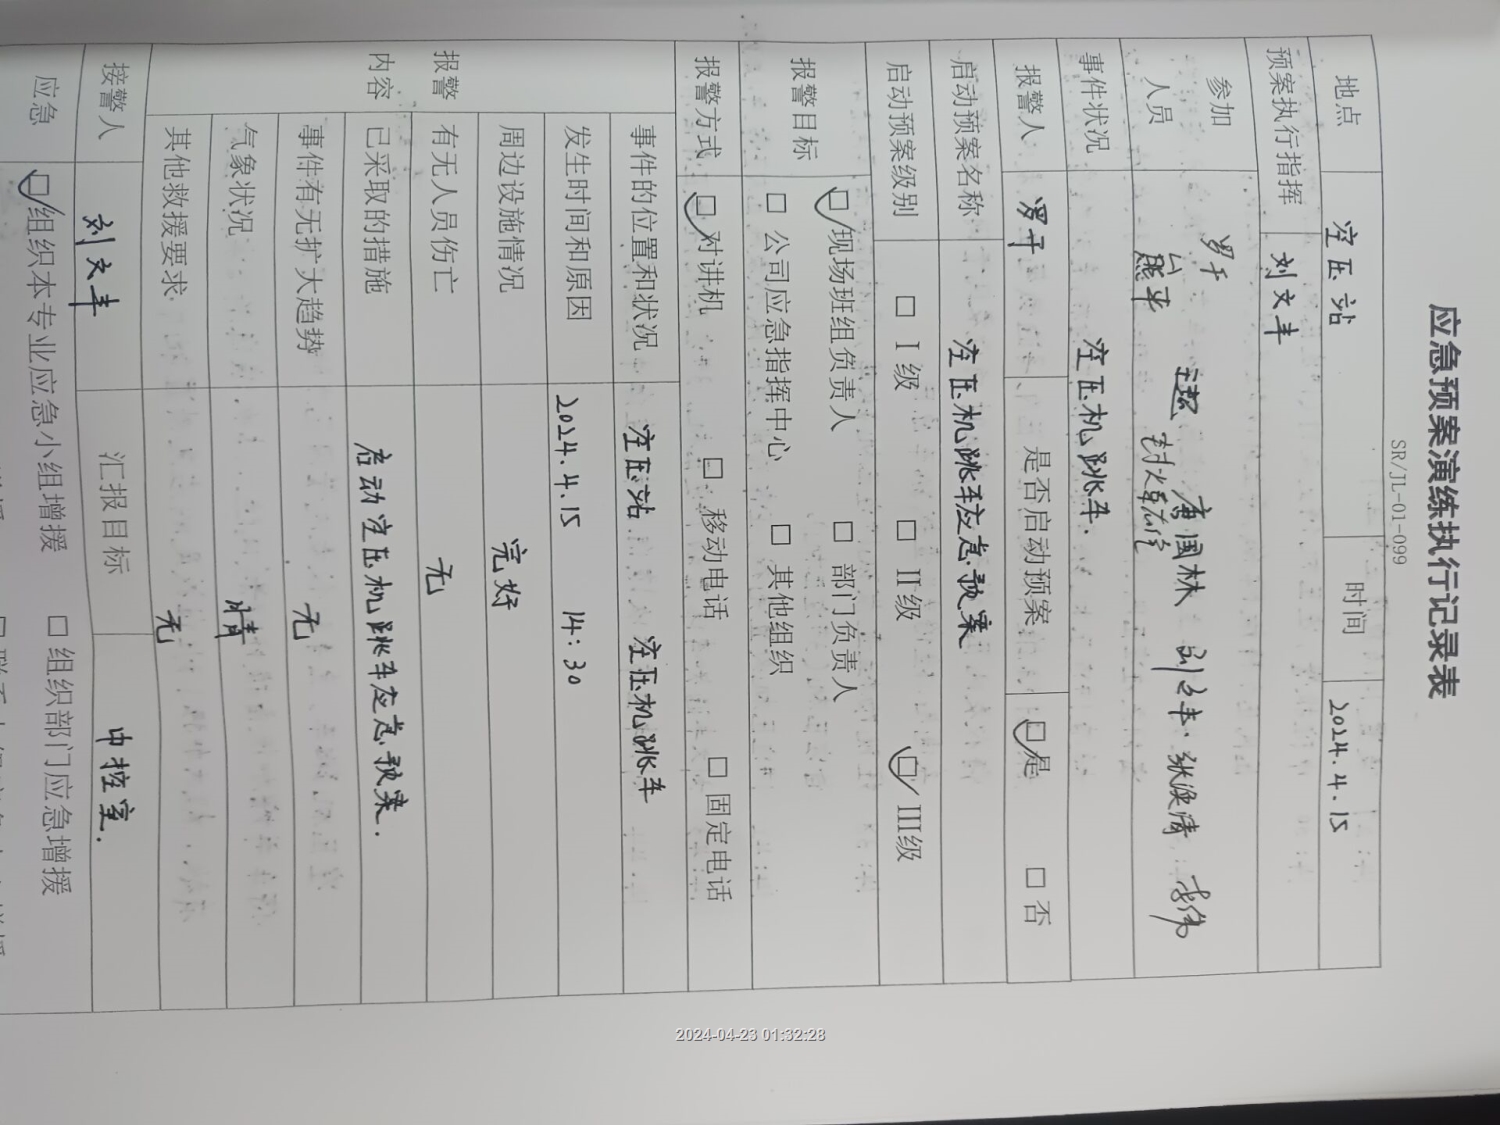 应急预案演练执行记录表
SR/JL-01-099
地点 空压站 时间 2024.4.15
预案执行指挥 刘文丰
参加人员 罗千 王超 唐国林 刘文丰. 张焕清
熊平
事件状况 空压机跳车.
报警人 罗千 是否启动预案 ☑是 □否
启动预案名称 空压机跳车应急预案
启动预案级别 □ I级 □ II级 ☑ III级
报警目标 ☑现场班组负责人 □ 部门负责人
□ 公司应急指挥中心 □ 其他组织
报警方式 ☑对讲机 □ 移动电话 □ 固定电话
报警内容
事件的位置和状况 空压站 空压机跳车
发生时间和原因 2024.4.15 14:30
周边设施情况 完好
有无人员伤亡 无
已采取的措施 启动空压机跳车应急预案.
事件有无扩大趋势 无
气象状况 晴
其他救援要求 无
接警人 刘文丰 汇报目标 中控室.
应急 ☑组织本专业应急小组增援 □ 组织部门应急增援
2024-04-23 01:32:28